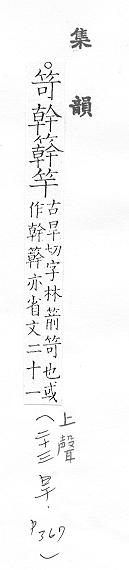 集韻
笴幹簳竿
古旱切字林箭笴也或
作幹簳亦省文二十一
上聲
(二十三旱. P367)